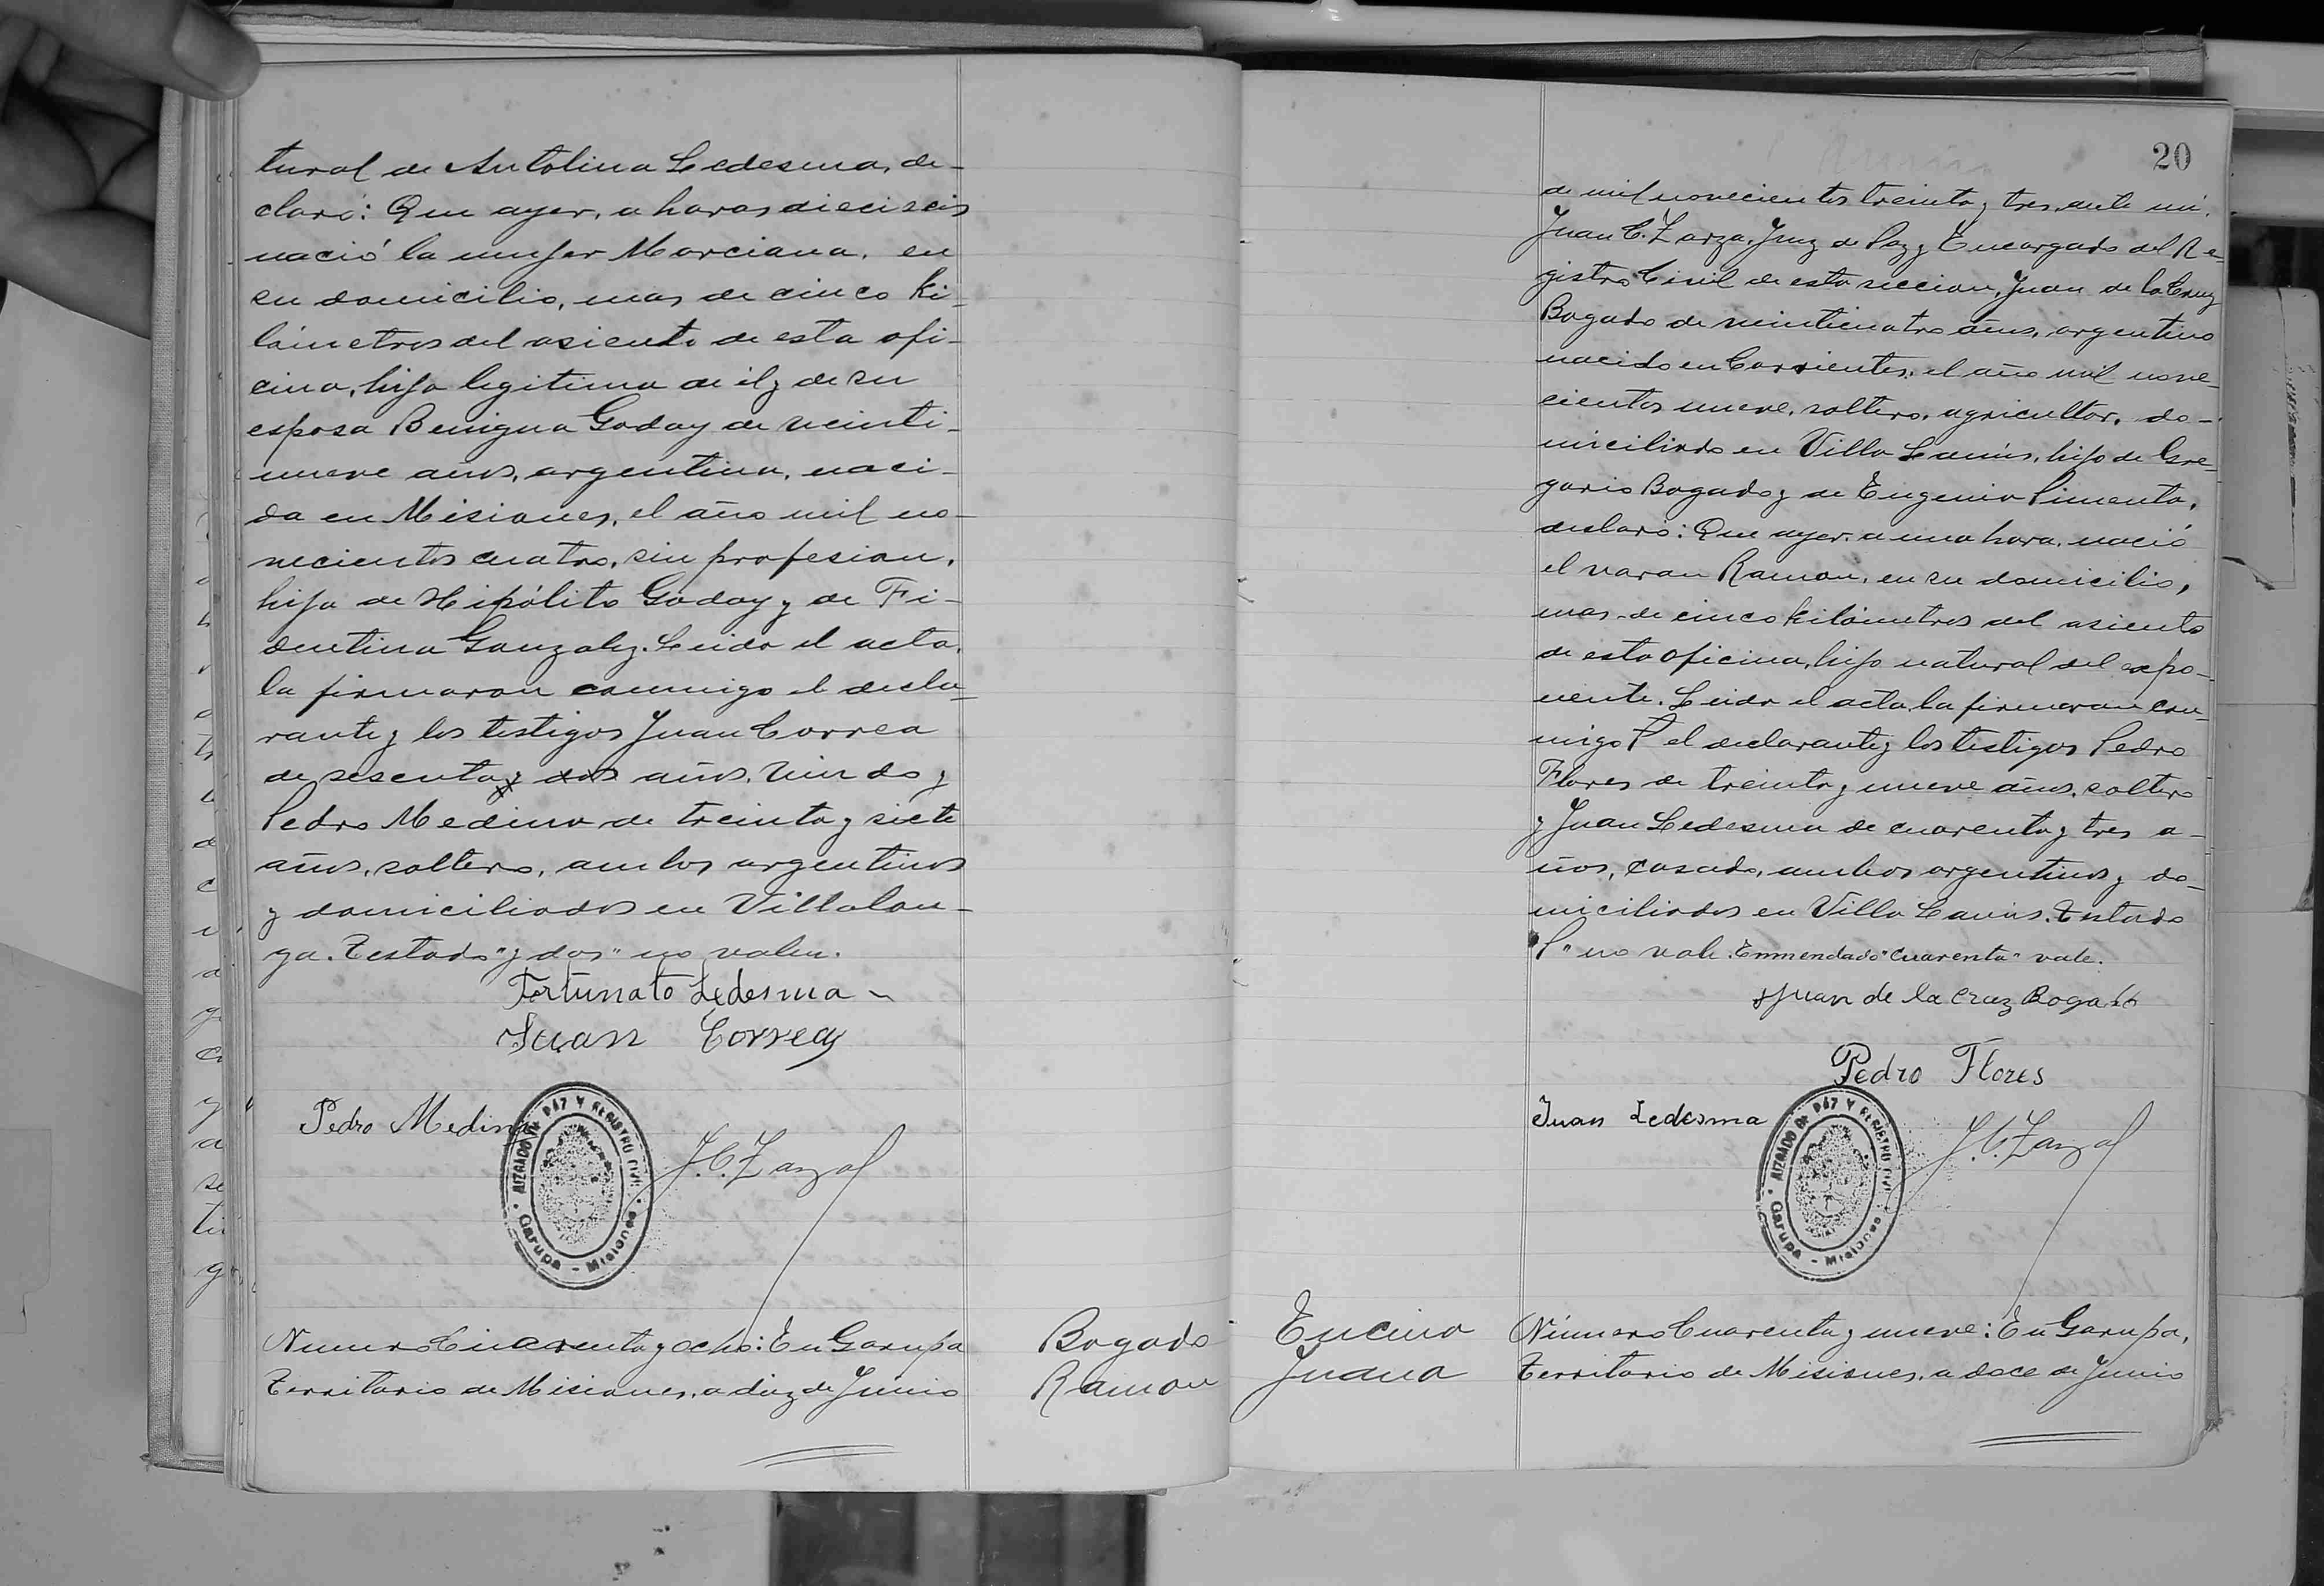 tural de Antolina Ledesma, de-
claró: Que ayer, a horas dieciseis
nació la mujer Marciana, en
su domicilio, mas de cinco ki-
lómetros del asiento de esta ofi-
cina, hija legitima de él y de su
esposa Benigna Godoy de veinti-
nueve años, argentina, naci-
da en Misiones, el año mil no-
vecientos cuatro, sin profesion,
hija de Hipólito Godoy y de Fi-
dentina Gonzalez. Leida el acta,
la firmaron conmigo el decla-
rante y los testigos Juan Correa
de sesenta y dos años, viudo y
Pedro Medina de treinta y siete
años, soltero, ambos argentinos
y domiciliados en Villalon-
ga. Testado "y dos" no valen.
Fortunato Ledesma
Juan Correa
Pedro Medina
JUZGADO DE PAZ Y REGISTRO CIVIL
Garupa - Misiones
J. C. Zarza
Numero Cuarenta y ocho: En Garupa
Territorio de Misiones, a diez de Junio
Bogado
Ramon
20
de mil novecientos treinta y tres, ante mí,
Juan C. Zarza, Juez de Paz y Encargado del Re-
gistro Civil de esta seccion, Juan de la Cruz
Bogado de veinticuatro años, argentino
nacido en Corrientes, el año mil nove-
cientos nueve, soltero, agricultor, do-
miciliado en Villa Lanús, hijo de Gre-
gorio Bogado y de Eugenia Pimenta,
declaró: Que ayer a una hora, nació
el varon Ramon, en su domicilio,
mas de cinco kilómetros del asiento
de esta oficina, hijo natural del expo-
nente. Leida el acta, la firmaron con-
migo P el declarante y los testigos Pedro
Flores de treinta y nueve años, soltero
y Juan Ledesma de cuarenta y tres a-
ños, casado, ambos argentinos y do-
miciliados en Villa Lanús. Testado
"P" no vale. Enmendado "cuarenta" vale.
Juan de la Cruz Bogado
Pedro Flores
Juan Ledesma
JUZGADO DE PAZ Y REGISTRO CIVIL
Garupa - Misiones
J. C. Zarza
Encina
Juana
Número Cuarenta y nueve: En Garupa,
Territorio de Misiones, a doce de Junio